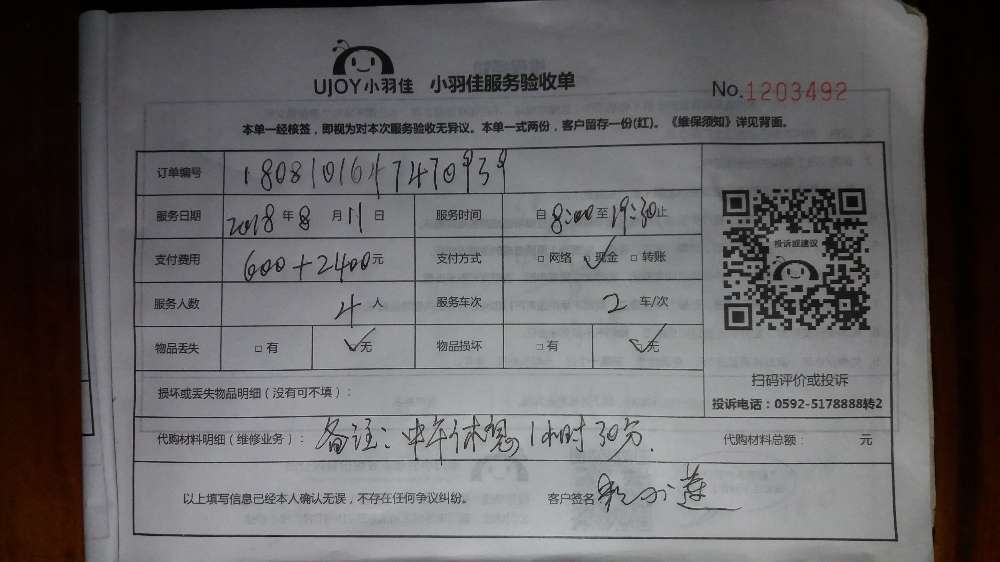 UJOY小羽佳 小羽佳服务验收单
No.1203492
本单一经核签，即视为对本次服务验收无异议。本单一式两份，客户留存一份(红)。《维保须知》详见背面。
订单编号
服务日期 2018 年 8 月 11 日 服务时间 自 8:00 至 19:30 止
支付费用 600+2400 元 支付方式 □ 网络 ☑ 现金 □ 转账
服务人数 4 人 服务车次 2 车/次
物品丢失 □ 有 ☑ 无 物品损坏 □ 有 ☑ 无
投诉或建议
扫码评价或投诉
投诉电话：0592-5178888转2
损坏或丢失物品明细（没有可不填）：
代购材料明细（维修业务）： 备注：中午休息1小时30分. 代购材料总额： 元
以上填写信息已经本人确认无误，不存在任何争议纠纷。 客户签名